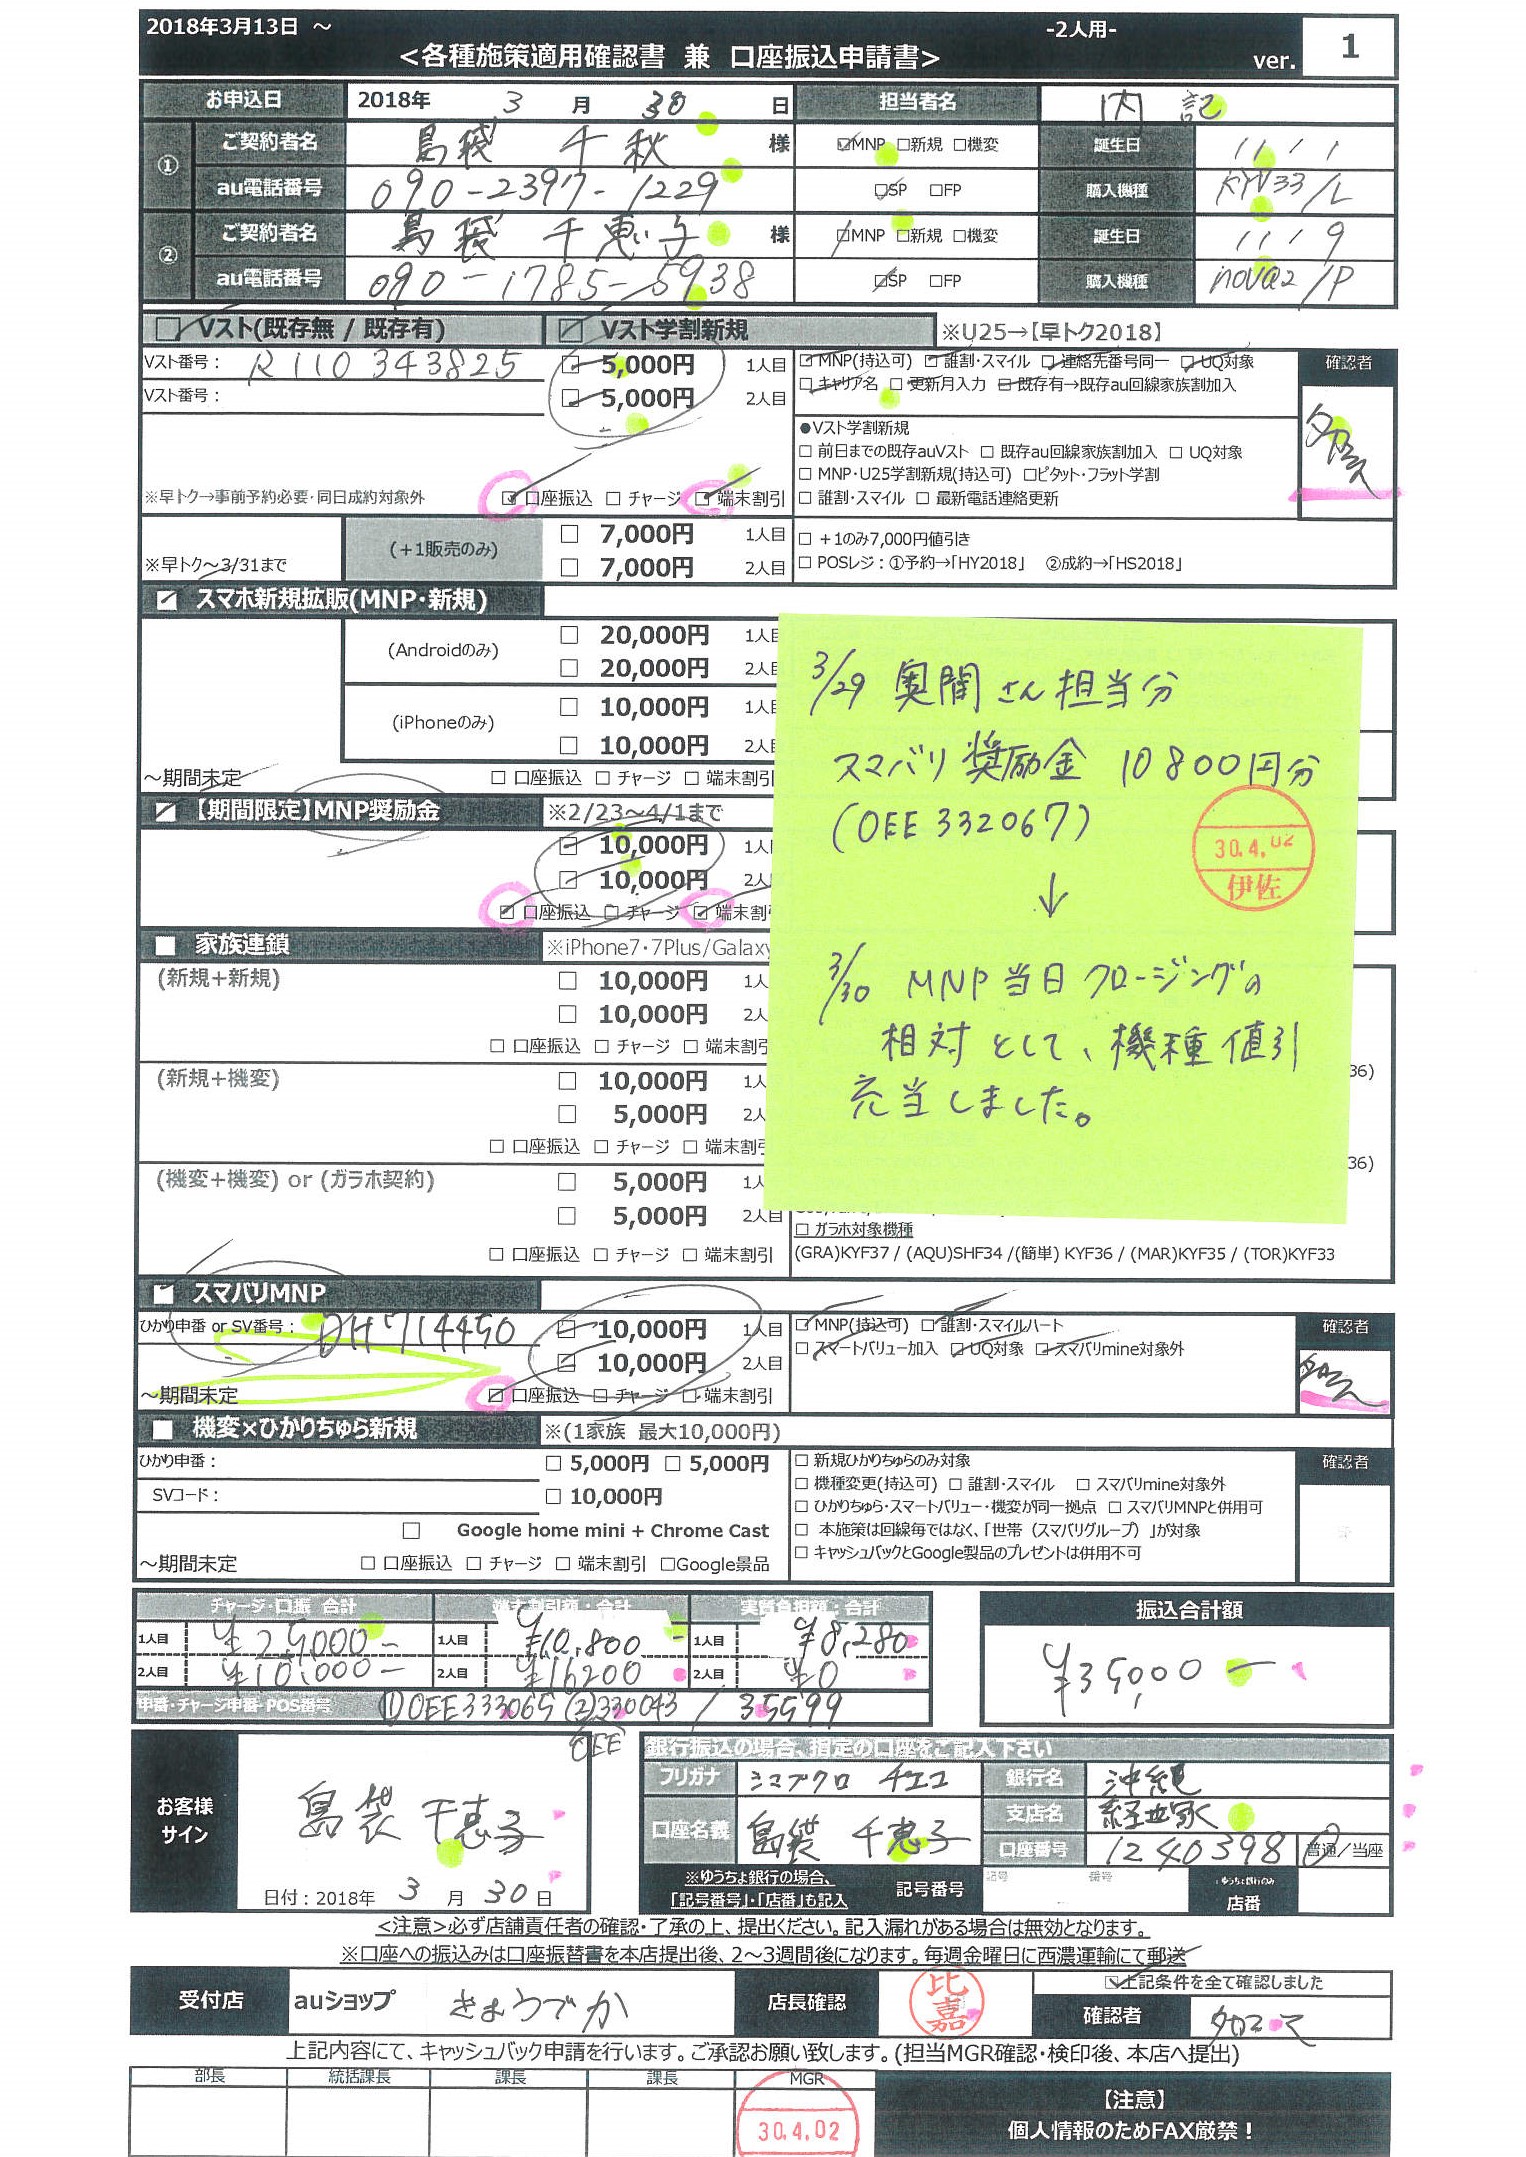 2018年3月13日 ～
-2人用-
<各種施策適用確認書 兼 口座振込申請書>
ver. 1
お申込日 2018年 3 月 30 日 担当者名 内 記
① ご契約者名 島袋 千秋 様 ☑MNP □新規 □機変 誕生日 1111
au電話番号 090-2397-1229 ☑SP □FP 購入機種 KYV33/L
② ご契約者名 島袋 千恵子 様 ☑MNP □新規 □機変 誕生日 1119
au電話番号 090-1785-5938 ☑SP □FP 購入機種 nova2/P
Vスト(既存無 / 既存有) Vスト学割新規 ※U25→【早トク2018】
Vスト番号： R110343825 ☑ 5,000円 1人目
Vスト番号： ☑ 5,000円 2人目
☑ MNP(持込可) ☑ 誰割・スマイル ☑ 連絡先番号同一 ☑ UQ対象
☑ キャリア名 □ 更新月入力 ☑ 既存有→既存au回線家族割加入
確認者
●Vスト学割新規
□ 前日までの既存auVスト □ 既存au回線家族割加入 □ UQ対象
□ MNP・U25学割新規(持込可) □ピタット・フラット学割
□ 誰割・スマイル □ 最新電話連絡更新
※早トク→事前予約必要・同日成約対象外 ☑ 口座振込 □ チャージ ☑ 端末割引
※早トク～3/31まで (+1販売のみ)
□ 7,000円 1人目
□ 7,000円 2人目
□ +1のみ7,000円値引き
□ POSレジ：①予約→「HY2018」 ②成約→「HS2018」
☑ スマホ新規拡販(MNP・新規)
(Androidのみ) □ 20,000円 1人目
□ 20,000円 2人目
(iPhoneのみ) □ 10,000円 1人
□ 10,000円 2人
～期間未定 □ 口座振込 □ チャージ □ 端末割引
☑ 【期間限定】MNP奨励金 ※2/23～4/1まで
☑ 10,000円 1人
☑ 10,000円 2人
☑ 口座振込 □ チャージ ☑ 端末割引
■ 家族連鎖 ※iPhone7・7Plus/Galaxy
(新規+新規) □ 10,000円 1人
□ 10,000円 2人
□ 口座振込 □ チャージ □ 端末割引
(新規+機変) □ 10,000円 1人
□ 5,000円 2人
□ 口座振込 □ チャージ □ 端末割引
(機変+機変) or (ガラホ契約) □ 5,000円 1人
□ 5,000円 2人目
□ 口座振込 □ チャージ □ 端末割引
36)
36)
□ ガラホ対象機種
(GRA)KYF37 / (AQU)SHF34 /(簡単) KYF36 / (MAR)KYF35 / (TOR)KYF33
3/29 奥間さん担当分
スマバリ 奨励金 10800円分
(OEE332067)
30.4.02
伊佐
↓
3/30 MNP当日クロージングの
相対として、機種値引
充当しました。
☑ スマバリMNP
ひかり申番 or SV番号： DH714450 ☑ 10,000円 1人目
☑ 10,000円 2人目
☑ MNP(持込可) ☑ 誰割・スマイルハート
☑ スマートバリュー加入 ☑ UQ対象 ☑ スマバリmine対象外
確認者
～期間未定 ☑ 口座振込 □ チャージ □ 端末割引
■ 機変×ひかりちゅら新規 ※(1家族 最大10,000円)
ひかり申番： □ 5,000円 □ 5,000円
SVコード： □ 10,000円
□ Google home mini + Chrome Cast
～期間未定 □ 口座振込 □ チャージ □ 端末割引 □Google景品
□ 新規ひかりちゅらのみ対象
□ 機種変更(持込可) □ 誰割・スマイル □ スマバリmine対象外
□ ひかりちゅら・スマートバリュー・機変が同一拠点 □ スマバリMNPと併用可
□ 本施策は回線毎ではなく、「世帯（スマバリグループ）」が対象
□ キャッシュバックとGoogle製品のプレゼントは併用不可
確認者
チャージ・口振 合計 端末割引額・合計 実質負担額・合計
1人目 ¥25,000- 1人目 ¥10,800- 1人目 ¥8,280
2人目 ¥10,000- 2人目 ¥16200 2人目 ¥0
申番・チャージ申番・POS番号 ①OEE333065 ②330043 / 35599
OEE
振込合計額
¥35,000-
お客様サイン 島袋 千恵子
日付：2018年 3 月 30 日
銀行振込の場合、指定の口座をご記入下さい
フリガナ シマブクロ チエコ 銀行名 沖縄
口座名義 島袋 千恵子 支店名 経塚
口座番号 1240398 普通／当座
※ゆうちょ銀行の場合、
「記号番号」・「店番」も記入
記号番号 記号 番号 ゆうちょ銀行のみ 店番
<注意>必ず店舗責任者の確認・了承の上、提出ください。記入漏れがある場合は無効となります。
※口座への振込みは口座振替書を本店提出後、2～3週間後になります。毎週金曜日に西濃運輸にて郵送
受付店 auショップ きょうづか 店長確認 比嘉
☑上記条件を全て確認しました
確認者
上記内容にて、キャッシュバック申請を行います。ご承認お願い致します。(担当MGR確認・検印後、本店へ提出)
部長 統括課長 課長 課長 MGR
30.4.02
【注意】
個人情報のためFAX厳禁！